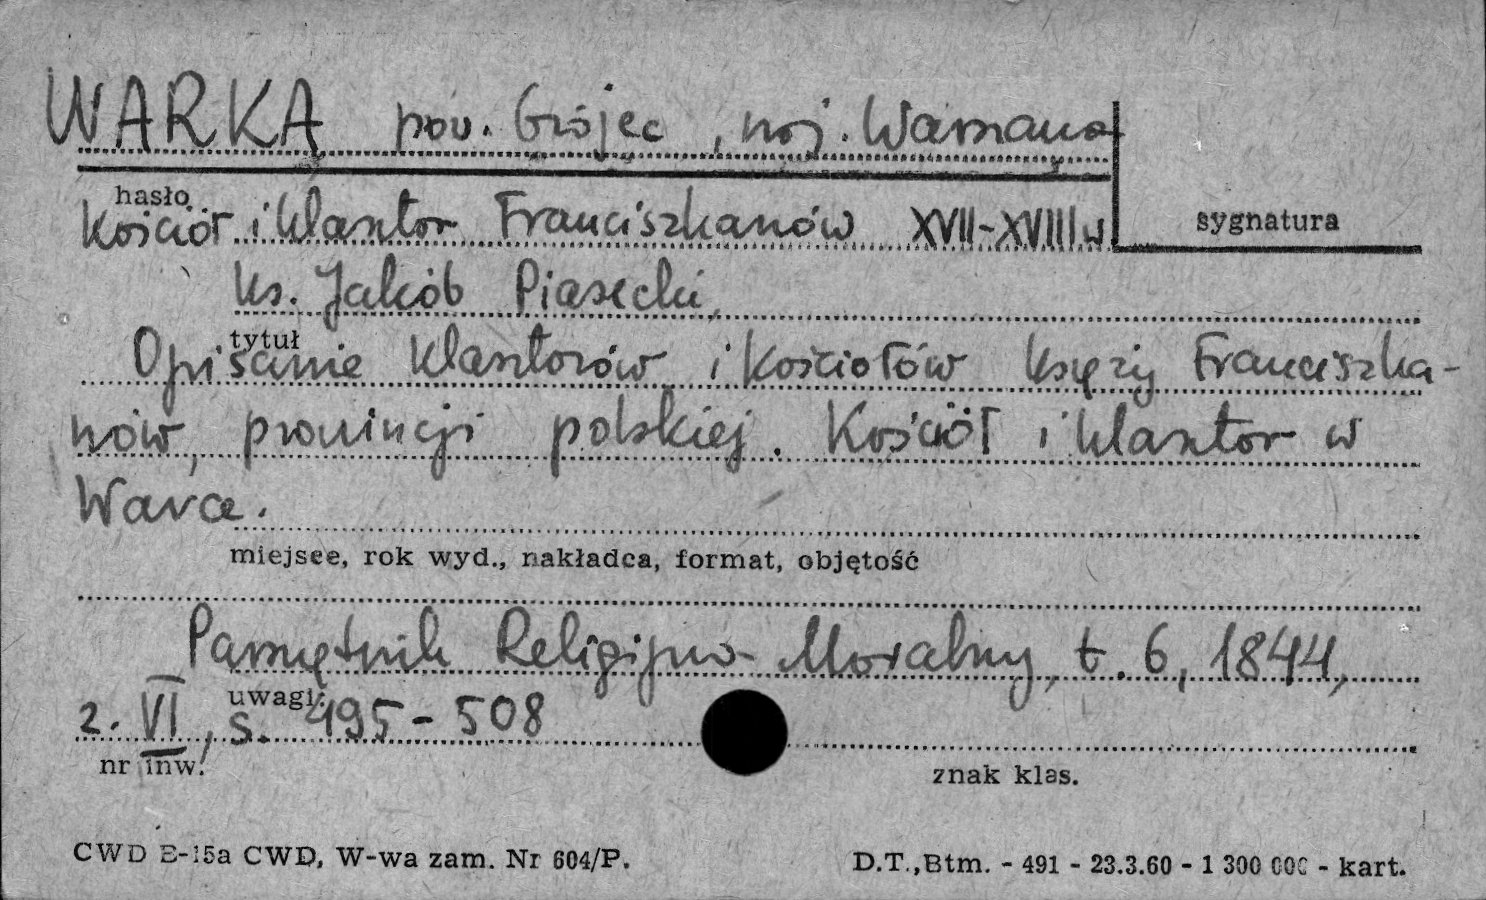 WARKA pow. Grójec, woj. Warszawa
hasło
Kościół i klasztor Franciszkanów XVII-XVIII w
sygnatura
ks. Jakób Piasecki,
tytuł
Opisanie klasztorów i kościołów księży Franciszka-
nów, prowincji polskiej. Kościół i klasztor w
Warce.
miejsce, rok wyd., nakładca, format, objętość
Pamiętnik Religijno-Moralny, t. 6, 1844,
uwagi:
z. VI, s. 495-508
nr inw.
znak klas.
CWD E-15a CWD, W-wa zam. Nr 604/P.
D.T.,Btm. - 491 - 23.3.60 - 1 300 000 - kart.